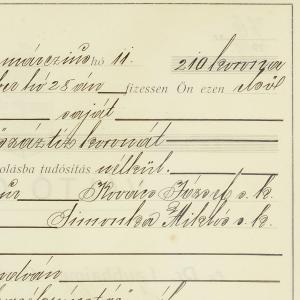 márczius hó 11. 210 korona
ber hó 28 án fizessen Ön ezen első
saját
száztíz koronát
olásba tudósítás nélkül.
Kovács József s. k.
Simonka Miklós s. k.